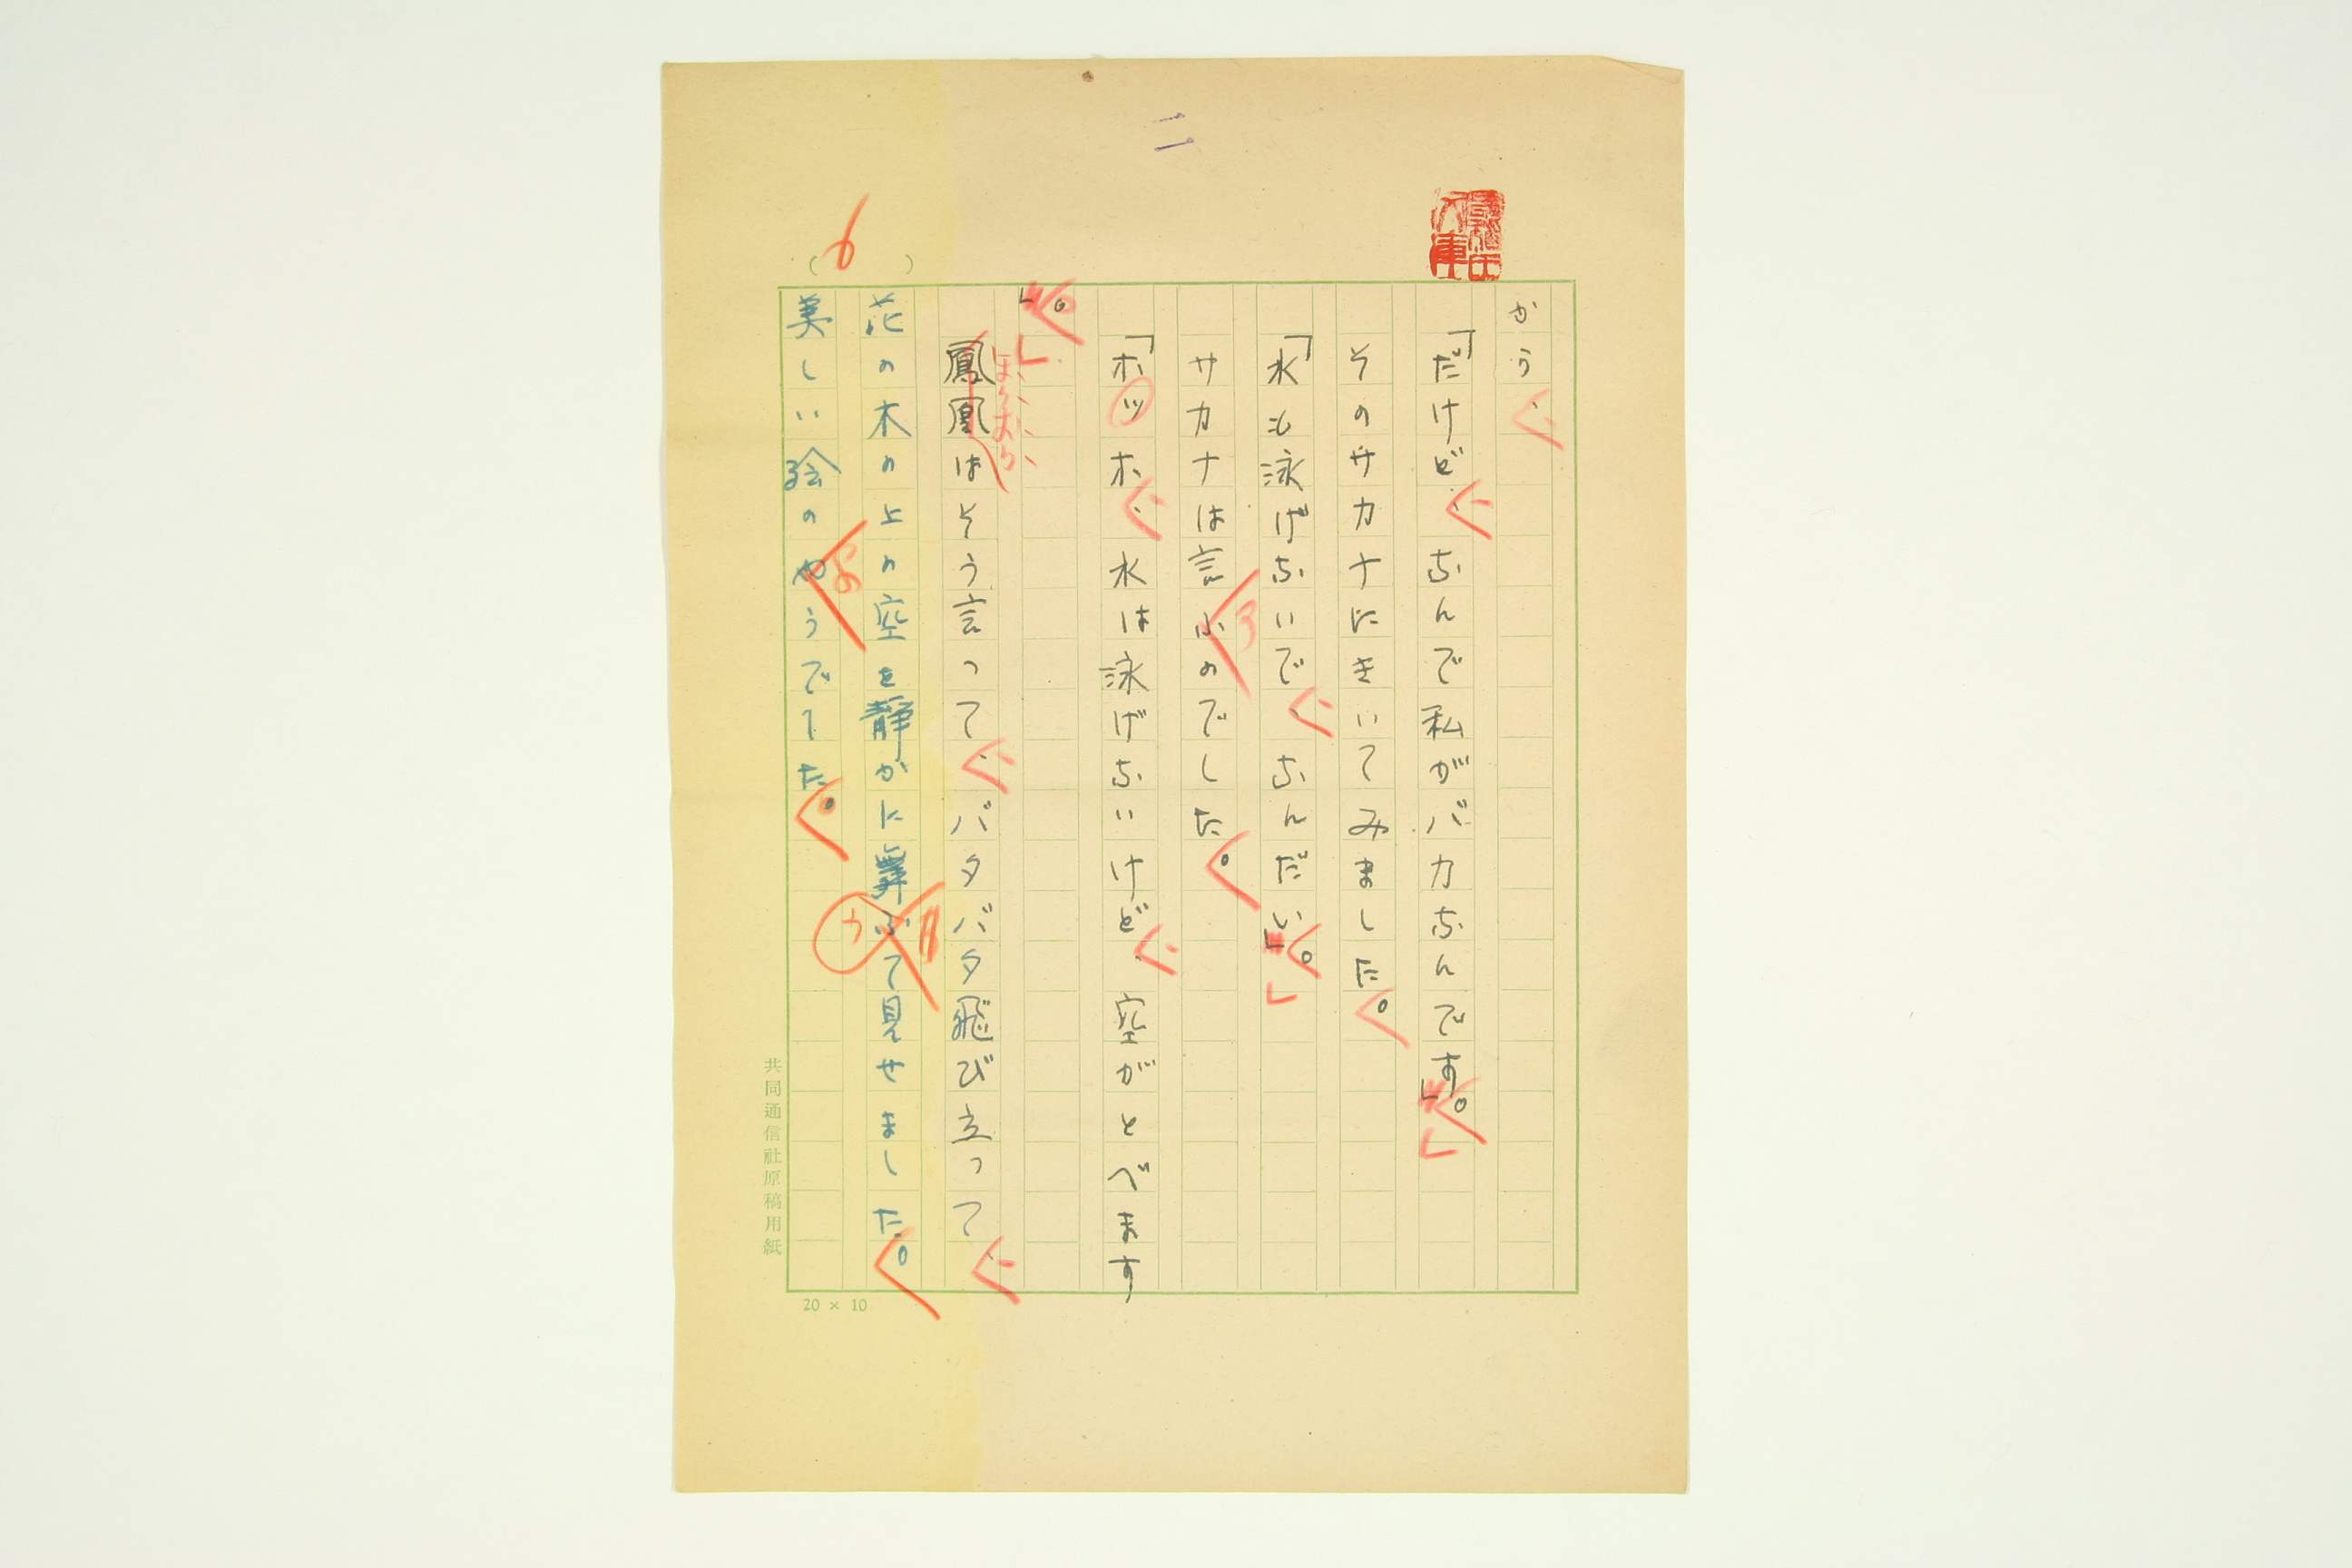 二
6
かう、
「だけど、なんで私がバカなんです。」
そのサカナにきいてみました。
「水も泳げないで、なんだい。」
サカナは言ふのでした。
う
「ホッホ、水は泳げないけど、空がとべます
。」
ほうおう
鳳凰はそう言って、バタバタ飛び立って、
花の木の上の空を静かに舞ふて見せました。
う
美しい絵のやうでした。
よ
共同通信社原稿用紙
20 × 10